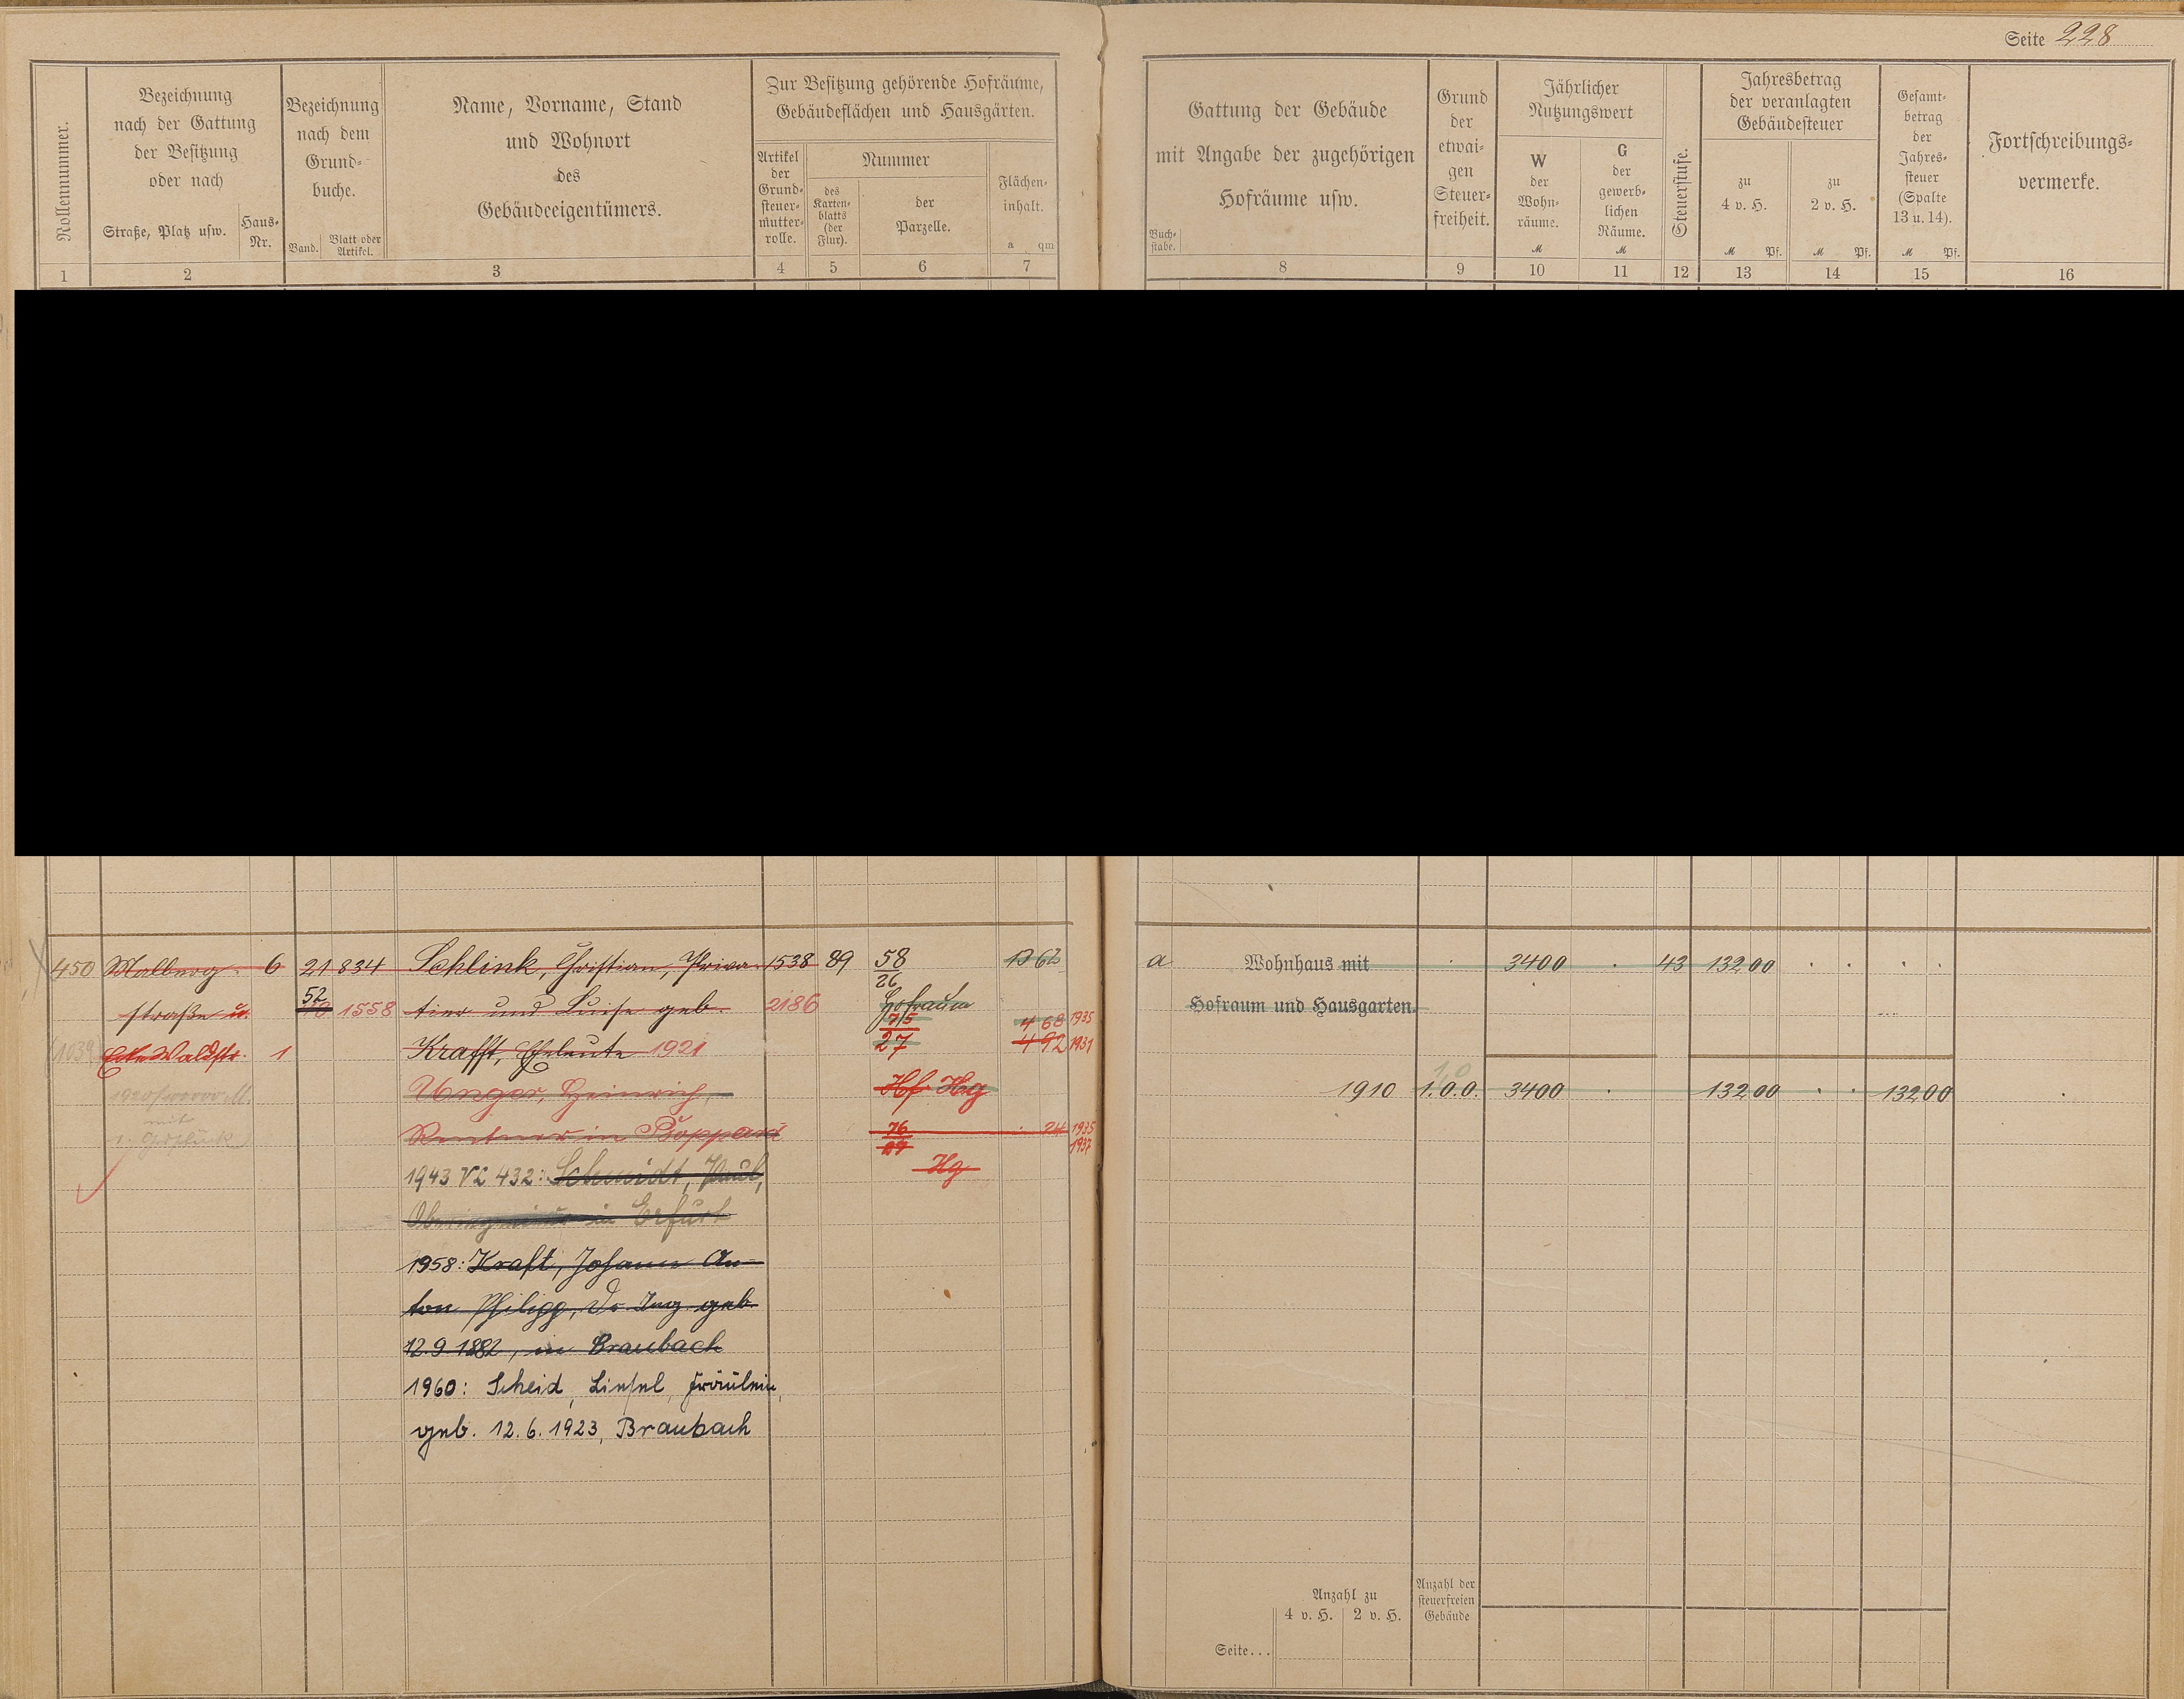 Seite 228
Rollennummer.
Bezeichnung
nach der Gattung
der Besitzung
oder nach
Straße, Platz usw.
Haus-
Nr.
Bezeichnung
nach dem
Grund-
buche.
Band.
Blatt oder
Artikel.
Name, Vorname, Stand
und Wohnort
des
Gebäudeeigentümers.
Zur Besitzung gehörende Hofräume,
Gebäudeflächen und Hausgärten.
Artikel
der
Grund-
steuer-
mutter-
rolle.
Nummer
des
Karten-
blatts
(der
Flur).
der
Parzelle.
Flächen-
inhalt.
a qm
1 2 3 4 5 6 7
Gattung der Gebäude
mit Angabe der zugehörigen
Hofräume usw.
Buch-
stabe.
Grund
der
etwai-
gen
Steuer-
freiheit.
Jährlicher
Nutzungswert
W
der
Wohn-
räume.
M
G
der
gewerb-
lichen
Räume.
M
Steuerstufe.
Jahresbetrag
der veranlagten
Gebäudesteuer
zu
4 v. H.
M Pf.
zu
2 v. H.
M Pf.
Gesamt-
betrag
der
Jahres-
steuer
(Spalte
13 u. 14).
M Pf.
Fortschreibungs-
vermerke.
8 9 10 11 12 13 14 15 16
450 Malberg- 6 21 834 Schlink, Christian, Priva- 1538 89 58 13 62
26
straße u. 52 1558 tier und Luise geb. 2186 Hofraum
75 4 68 1935
1039 Ecke Waldstr. 1 Krafft, Eheleute 1921 27 4 92 1931
Unger, Heinrich, Hf Hg
mit
Rentner in Boppard 76 24 1935
27 1937
1943 VL 432: Schmidt, Paul, Hg
Oberingenieur in Erfurt
1958: Kraft, Johann An-
ton Philipp, Dr. Ing. geb.
12.9.1882, in Braubach
1960: Scheid, Liesel, Fräulein,
geb. 12.6.1923, Braubach
a Wohnhaus mit 3400 43 132 00
Hofraum und Hausgarten.
1,0
1910 1.0.0. 3400 132 00 132 00
Anzahl zu
4 v. H. 2 v. H.
Anzahl der
steuerfreien
Gebäude
Seite...